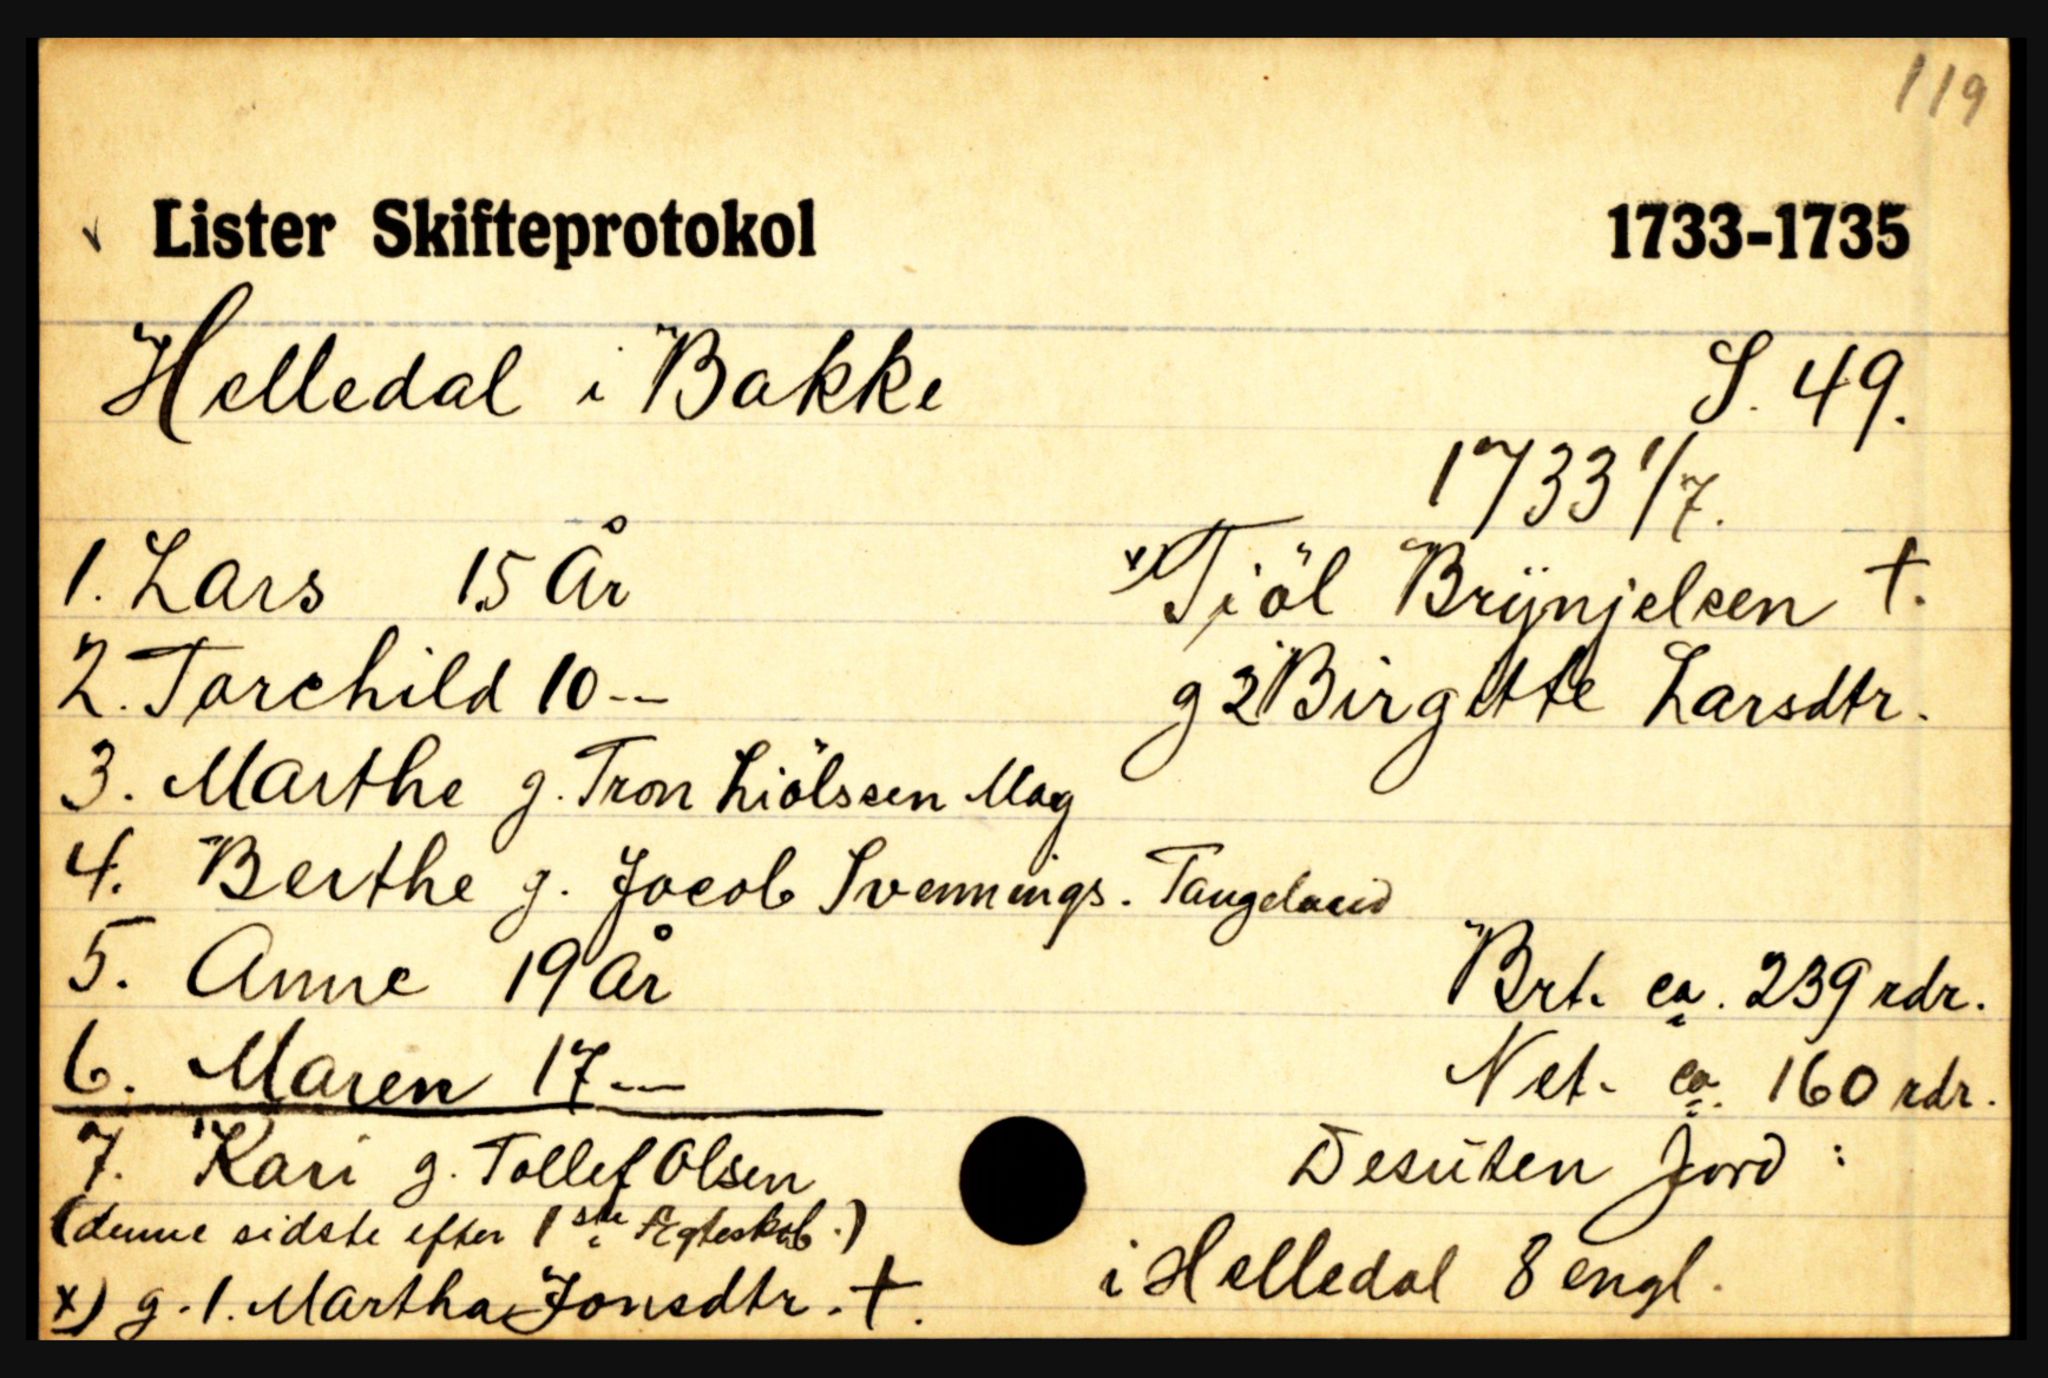 119
Lister Skifteprotokol 1733-1735
Helledal i Bakke S. 49.
1733 1/7.
1. Lars 15 År
x) Tiöl Brÿnjelsen †.
2. Torchild 10 --
g 2 Birgitte Larsdtr.
3. Marthe g. Tron Liölssen Mag
4. Berthe g. Jacob Svennings.
5. Anne 19 År
Brt. ca. 239 rdr.
6. Maren 17 --
Net. ca. 160 rdr.
7. Kari g. Tollef Olsen
Desuten Jord :
(denne sidste efter 1ste Ægteskab.)
i Helledal 8 engl.
x) g. 1. Martha Jonsdtr. †.